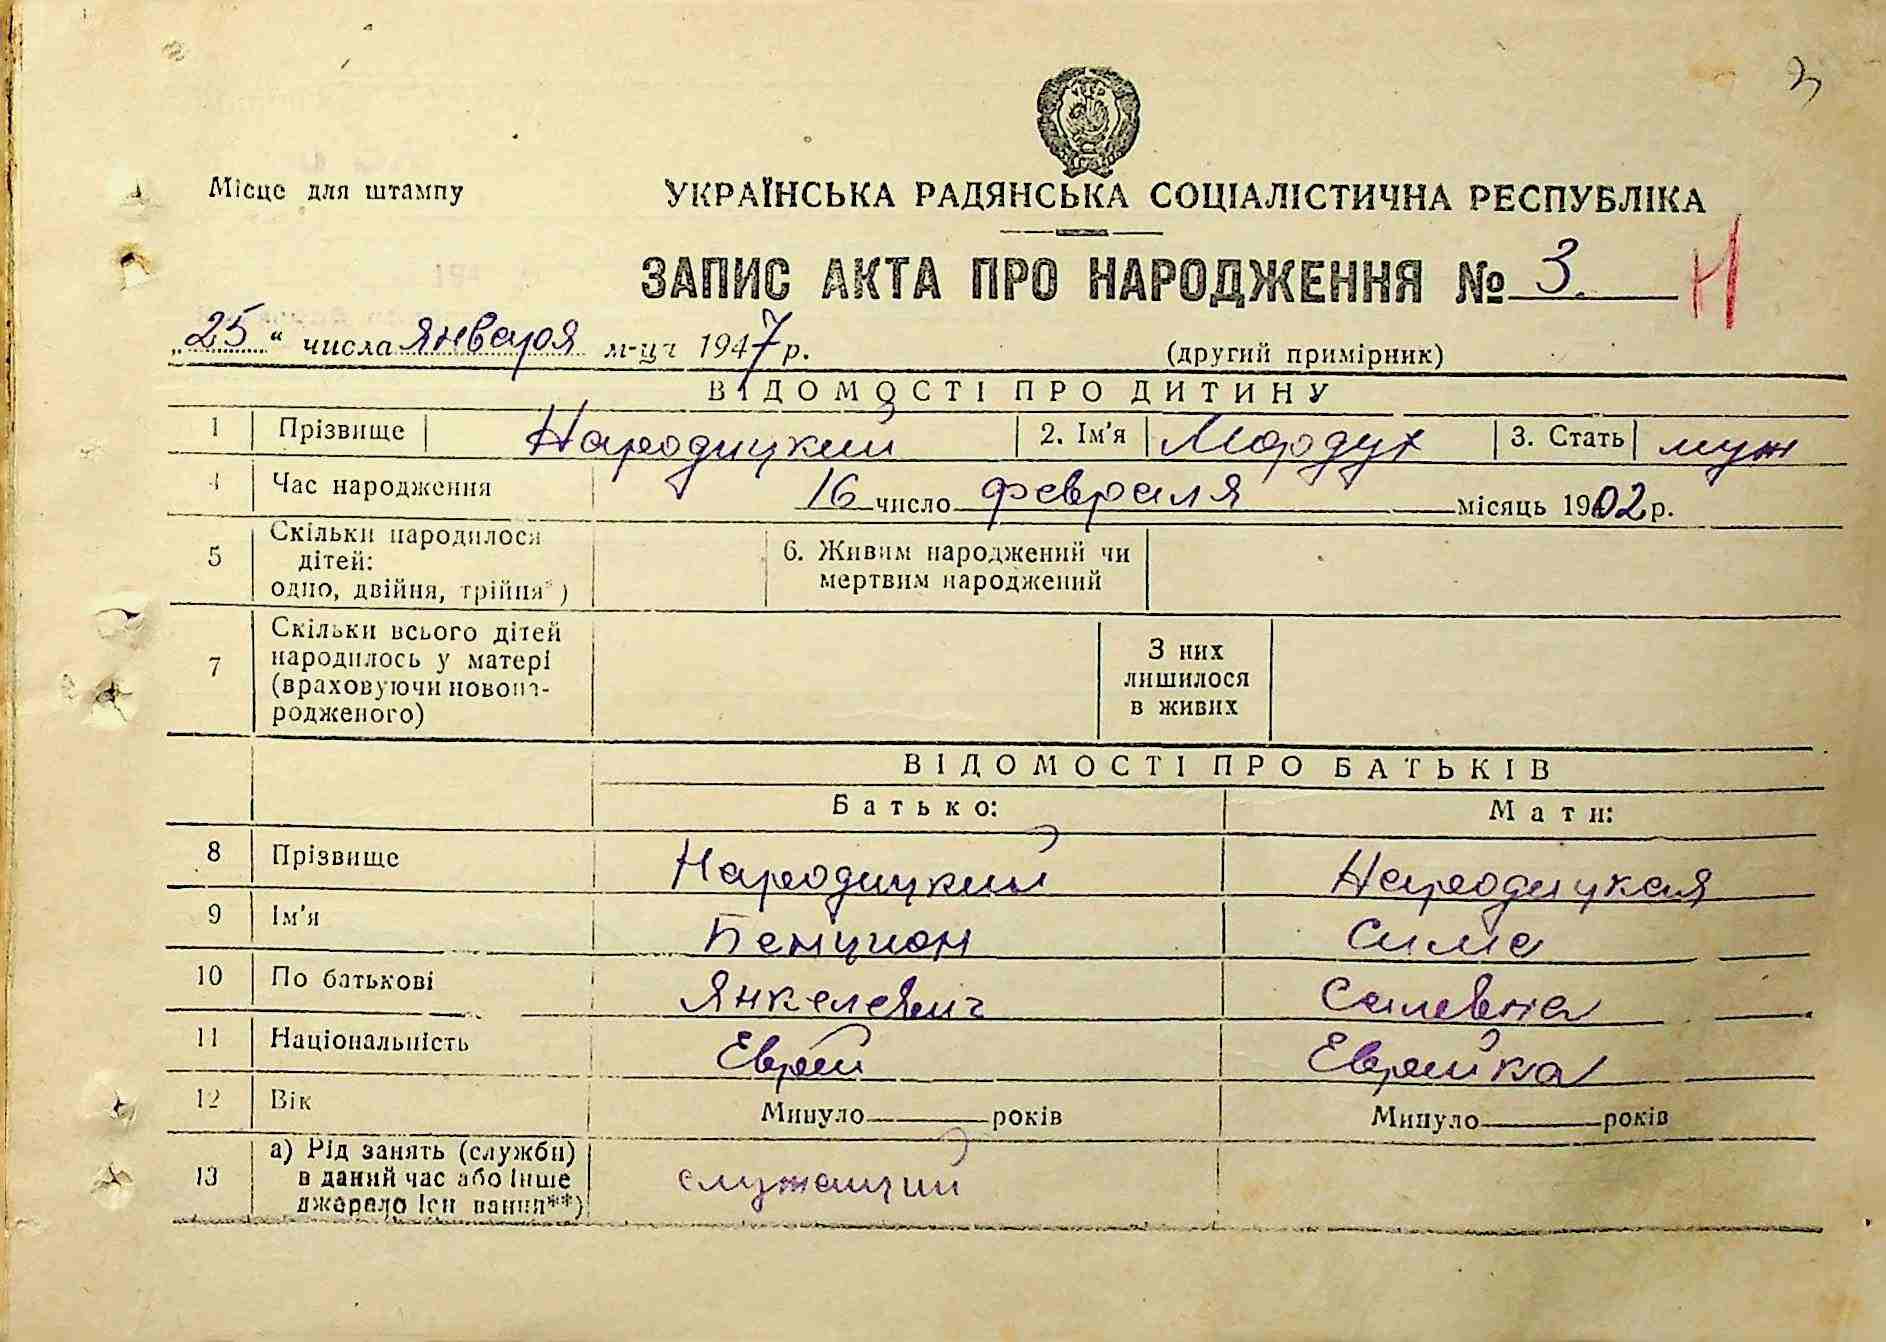 З
Місце для штампу
УКРАЇНСЬКА РАДЯНСЬКА СОЦІАЛІСТИЧНА РЕСПУБЛІКА
ЗАПИС АКТА ПРО НАРОДЖЕННЯ № 3. Н
„25“ числа января м-ця 1947 р. (другий примірник)
ВІДОМОСТІ ПРО ДИТИНУ
1 Прізвище Народицкий 2. Ім'я Мордух 3. Стать муж
4 Час народження 16 число февраля місяць 1902 р.
5 Скільки народилося
дітей:
одно, двійня, трійня*)
6. Живим народжений чи
мертвим народжений
7 Скільки всього дітей
народилось у матері
(враховуючи новона-
родженого)
З них
лишилося
в живих
ВІДОМОСТІ ПРО БАТЬКІВ
Батько: Мати:
8 Прізвище Народицкий Народицкая
9 Ім'я Бенцион Сима
10 По батькові Янкелевич
11 Національність Еврей Еврейка
12 Вік Минуло років Минуло років
13 а) Рід занять (служби)
в даний час або інше
джерело існ вання**)
служащий